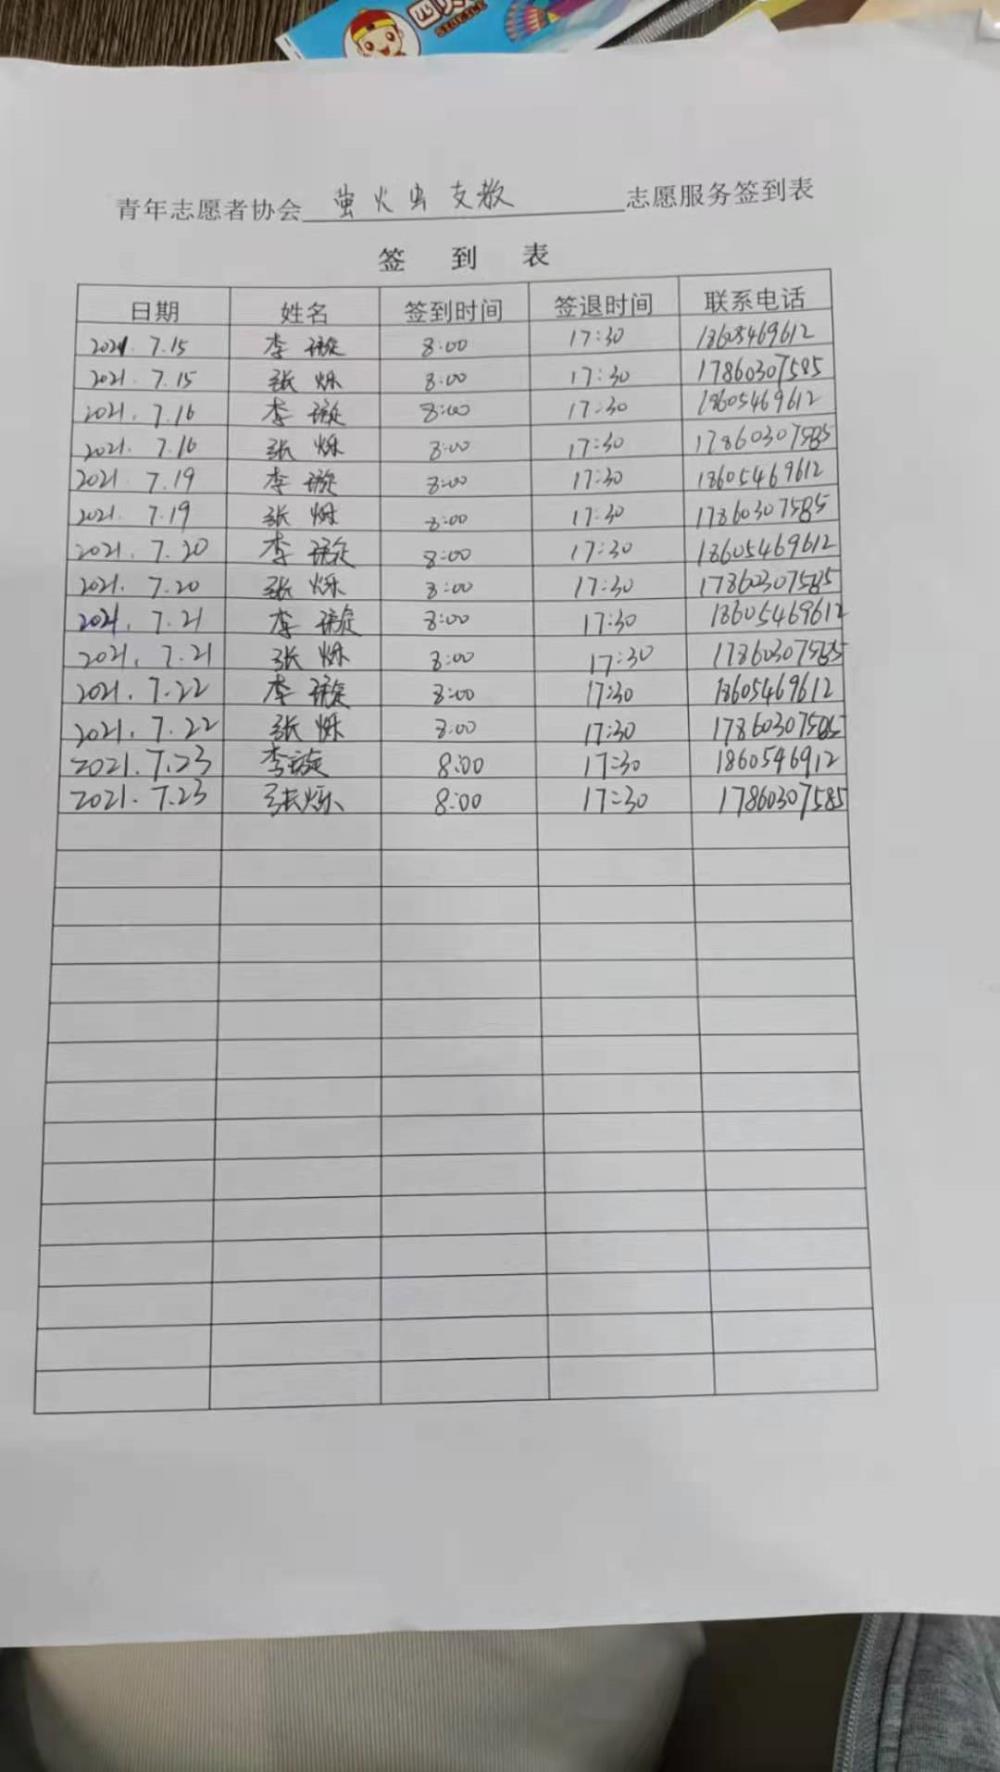 青年志愿者协会 萤火虫支教 志愿服务签到表
签 到 表
日期 姓名 签到时间 签退时间 联系电话
2021. 7.15 李璇 8:00 17:30 18605469612
2021. 7.15 张烁 8:00 17:30 17860307585
2021. 7.16 李璇 8:00 17:30 18605469612
2021. 7.16 张烁 8:00 17:30 17860307585
2021. 7.19 李璇 8:00 17:30 18605469612
2021. 7.19 张烁 8:00 17:30 17860307585
2021. 7.20 李璇 8:00 17:30 18605469612
2021. 7.20 张烁 8:00 17:30 17860307585
2021. 7.21 李璇 8:00 17:30 18605469612
2021. 7.21 张烁 8:00 17:30 17860307585
2021. 7.22 李璇 8:00 17:30 18605469612
2021. 7.22 张烁 8:00 17:30 17860307585
2021. 7.23 李璇 8:00 17:30 1860546912
2021. 7.23 张烁 8:00 17:30 17860307585